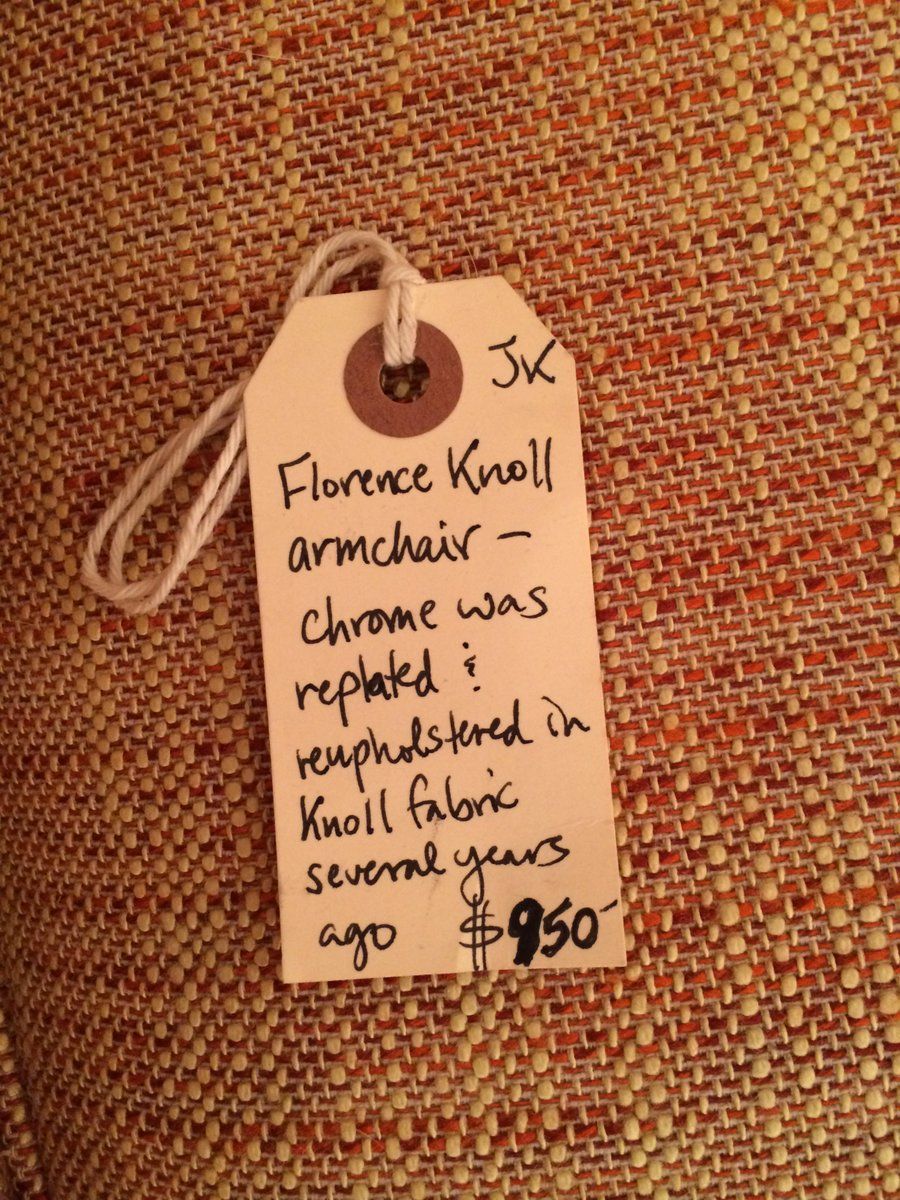 JK
Florence Knoll
armchair –
chrome was
replated &
reupholstered in
Knoll fabric
several years
ago $950-